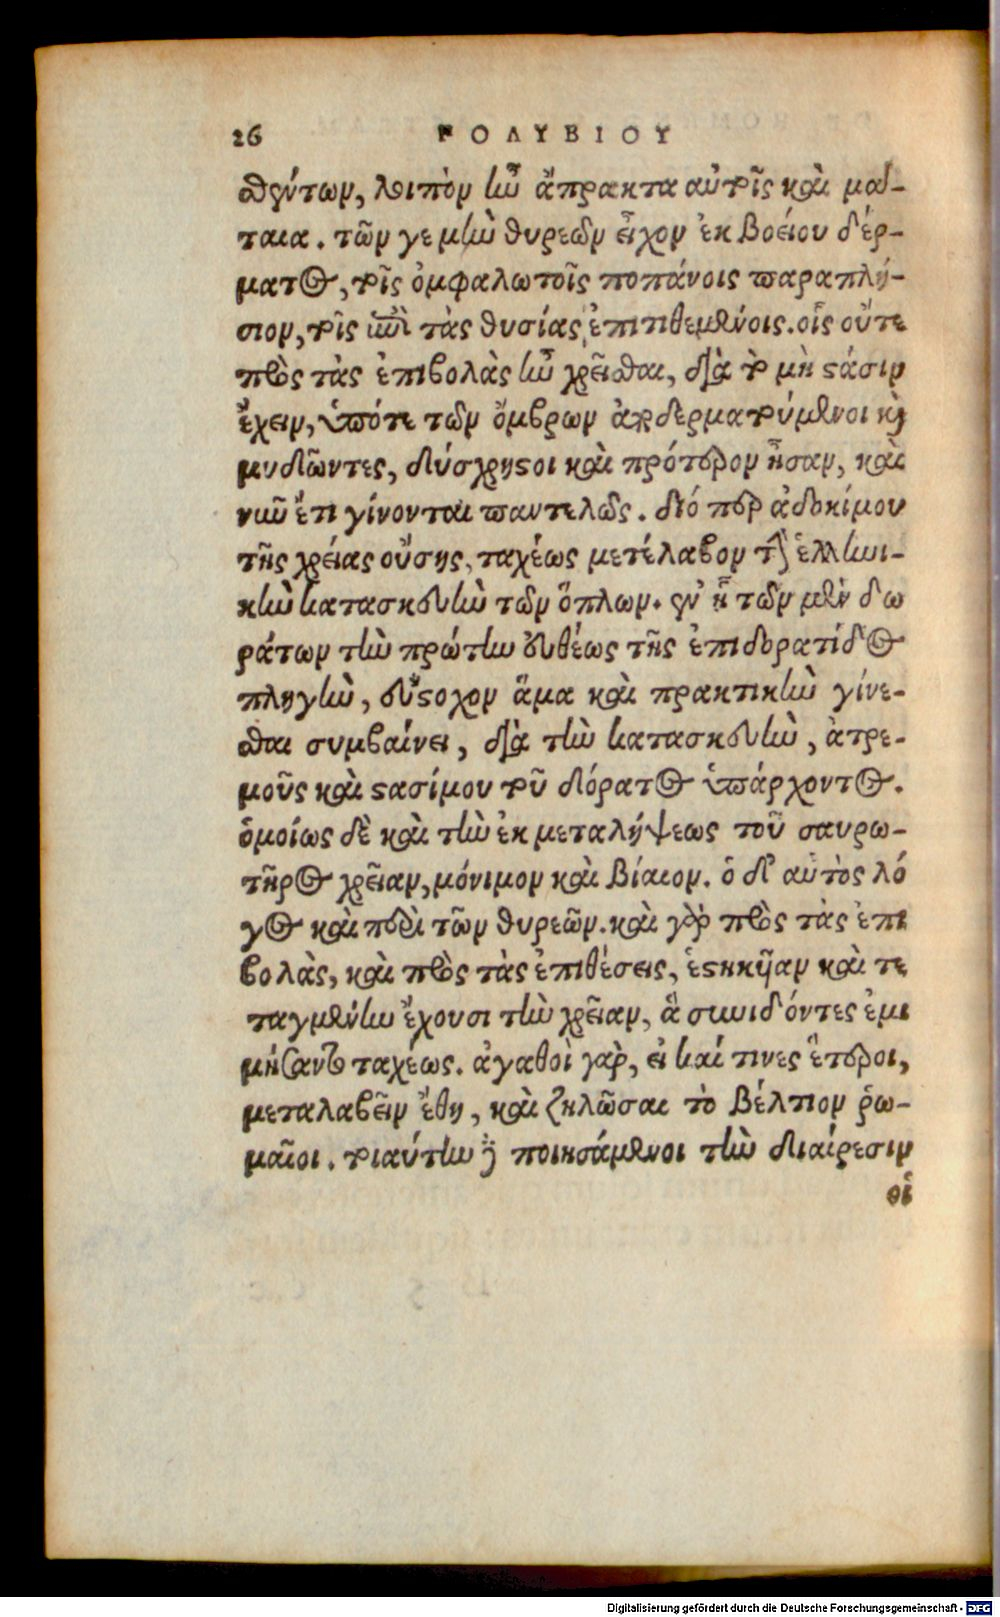 26 ΡΟΛΥΒΙΟΥ
σθέντων, λοιπὸν ἦν ἄπρακτα αὐτοῖς καὶ μά-
ταια. τῶν γε μὴν θυρεὸν εἶχον ἐκ βοείου δέρ-
ματος, τοῖς ὀμφαλωτοῖς ποπάνοις παραπλή-
σιον, τοῖς ἐπὶ τὰς θυσίας ἐπιτιθεμένοις. οἷς οὔτε
πρὸς τὰς ἐπιβολὰς ἦν χρεῖσθαι, διὰ τὸ μὴ στάσιν
ἔχειν, ὑπό τε τῶν ὄμβρων ἀποδερματούμενοι καὶ
μυδῶντες, δύσχρηστοι καὶ πρότερον ἦσαν, καὶ
νῦν ἔτι γίνονται παντελῶς. διό περ ἀδοκίμου
τῆς χρείας οὔσης, ταχέως μετέλαβον τὴν ἑλληνι-
κὴν κατασκευὴν τῶν ὅπλων. ἐν ᾗ τῶν μὲν δο
ράτων τὴν πρώτην εὐθέως τῆς ἐπιδορατίδος
πληγὴν, εὔστοχον ἅμα καὶ πρακτικὴν γίνε-
σθαι συμβαίνει, διὰ τὴν κατασκευὴν, ἀτρε-
μοῦς καὶ στασίμου τοῦ δόρατος ὑπάρχοντος.
ὁμοίως δὲ καὶ τὴν ἐκ μεταλήψεως τοῦ σαυρω-
τῆρος χρείαν, μόνιμον καὶ βίαιον. ὁ δ' αὐτὸς λό
γος καὶ περὶ τῶν θυρεῶν. καὶ γὰρ πρὸς τὰς ἐπι
βολὰς, καὶ πρὸς τὰς ἐπιθέσεις, ἑστηκυῖαν καὶ τε
ταγμένην ἔχουσι τὴν χρείαν, ἃ συνιδόντες ἐμι
μήσαντο ταχέως. ἀγαθοὶ γὰρ, εἰ καί τινες ἕτεροι,
μεταλαβεῖν ἔθη, καὶ ζηλῶσαι τὸ βέλτιον ῥω-
μαῖοι. τοιαύτην δὲ ποιησάμενοι τὴν διαίρεσιν
οἱ
Digitalisierung gefördert durch die Deutsche Forschungsgemeinschaft - DFG